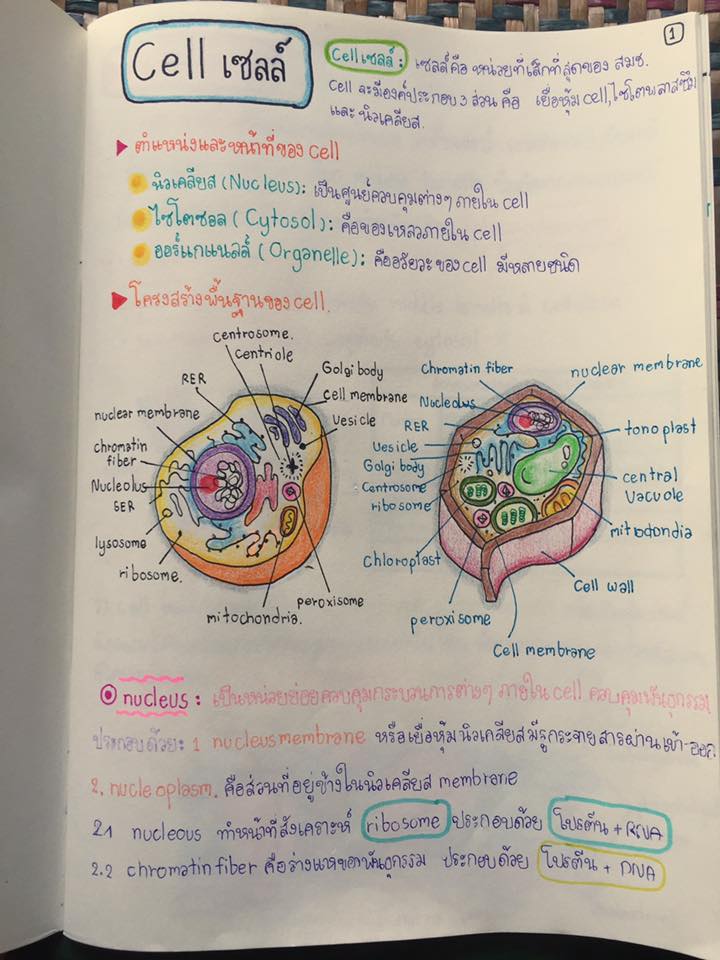 1
Cell เซลล์
Cell เซลล์ : เซลล์คือ หน่วยที่เล็กที่สุดของ สมช.
Cell จะมีองค์ประกอบ 3 ส่วน คือ เยื่อหุ้ม cell, ไซโตพลาสซึม
และ นิวเคลียส.
ตำแหน่งและหน้าที่ของ cell
นิวเคลียส (Nucleus): เป็นศูนย์ควบคุมต่างๆ ภายใน cell
ไซโตซอล (Cytosol): คือของเหลวภายใน cell
ออร์แกแนลล์ (Organelle): คืออวัยวะของ cell มีหลายชนิด
โครงสร้างพื้นฐานของ cell.
centrosome.
centriole
RER
Golgi body
cell membrane
vesicle
nuclear membrane
chromatin
fiber
Nucleolus
SER
lysosome
ribosome.
mitochondria.
peroxisome
chromatin fiber
nuclear membrane
Nucleolus
RER
Vesicle
Golgi body
Centrosome
ribosome
tonoplast
central
Vacuole
mitodondia
chloroplast
Cell wall
peroxisome
Cell membrane
nucleus : เป็นหน่วยย่อยควบคุมกระบวนการต่างๆ ภายใน cell ควบคุมพันธุกรรม
ประกอบด้วย: 1 nucleus membrane หรือเยื่อหุ้มนิวเคลียส มีรูกระจายสารผ่านเข้า-ออก.
2. nucleoplasm. คือส่วนที่อยู่ข้างในนิวเคลียส membrane
2.1 nucleous ทำหน้าที่สังเคราะห์ ribosome ประกอบด้วย โปรตีน + RNA
2.2 chromatin fiber คือร่างแหของพันธุกรรม ประกอบด้วย โปรตีน + DNA